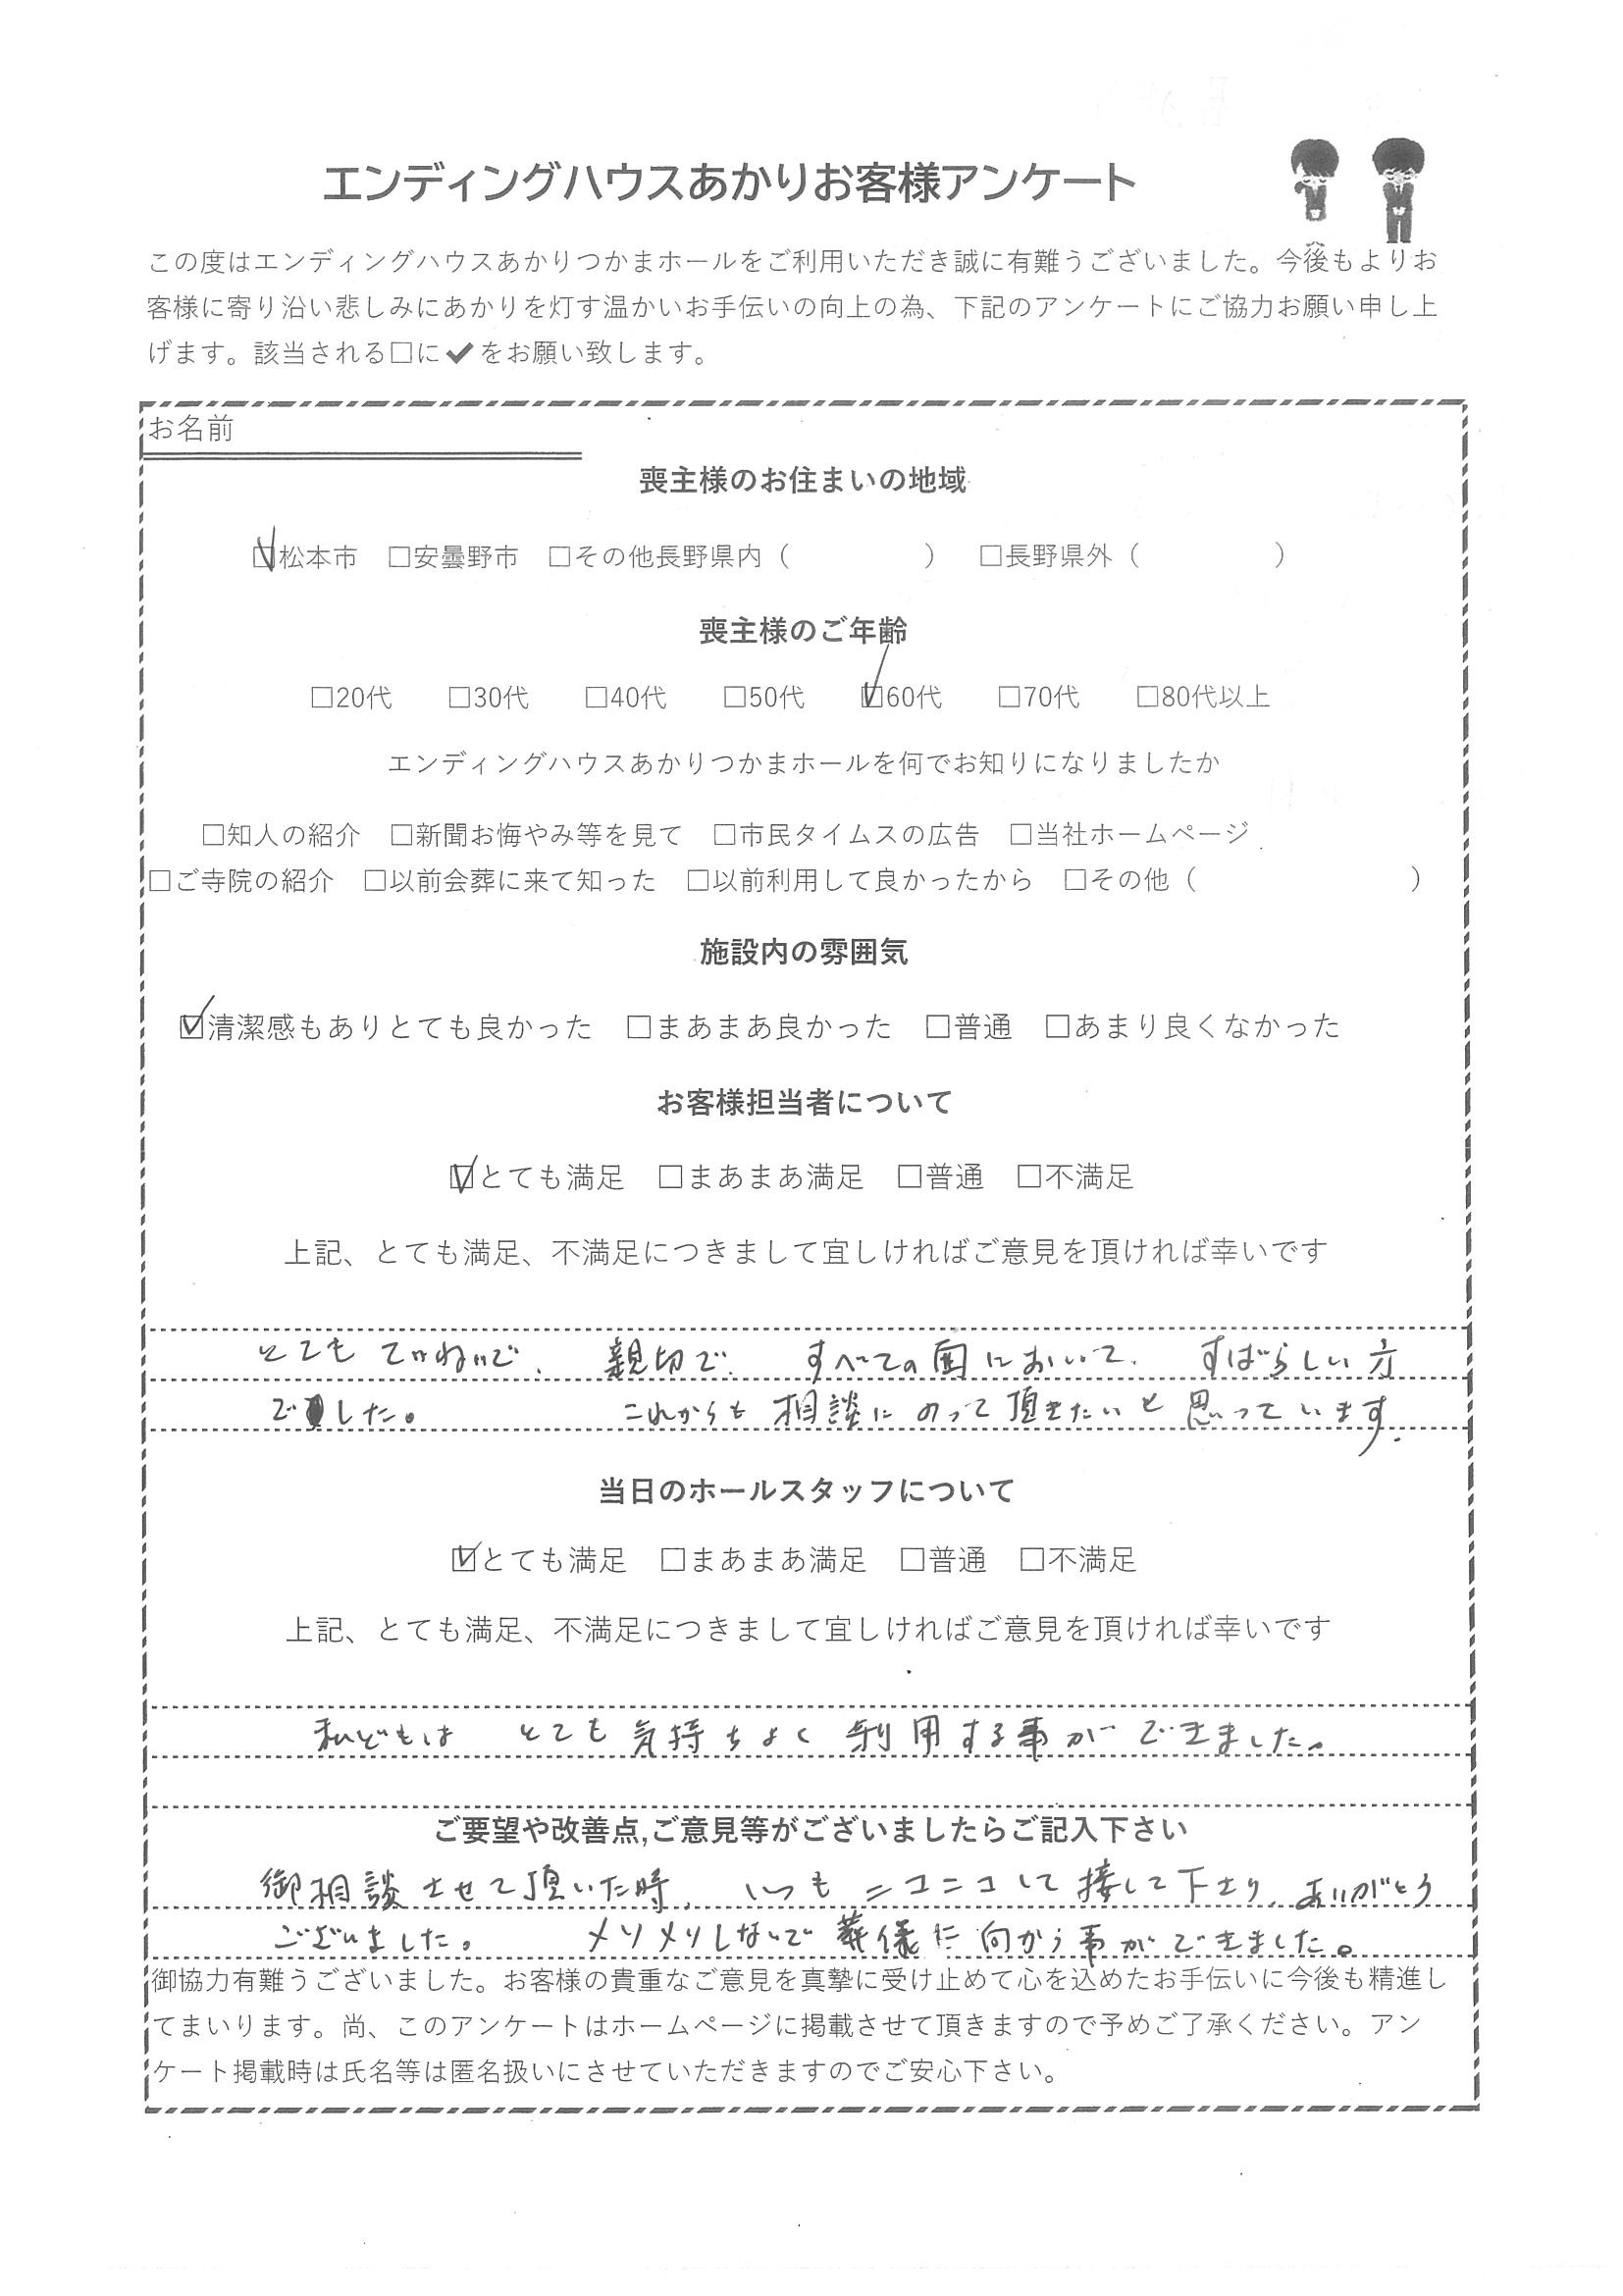 エンディングハウスあかりお客様アンケート
この度はエンディングハウスあかりつかまホールをご利用いただき誠に有難うございました。今後もよりお
客様に寄り沿い悲しみにあかりを灯す温かいお手伝いの向上の為、下記のアンケートにご協力お願い申し上
げます。該当される□に✔をお願い致します。
お名前
喪主様のお住まいの地域
☑松本市 □安曇野市 □その他長野県内（ ） □長野県外（ ）
喪主様のご年齢
□20代 □30代 □40代 □50代 ☑60代 □70代 □80代以上
エンディングハウスあかりつかまホールを何でお知りになりましたか
□知人の紹介 □新聞お悔やみ等を見て □市民タイムスの広告 □当社ホームページ
□ご寺院の紹介 □以前会葬に来て知った □以前利用して良かったから □その他（ ）
施設内の雰囲気
☑清潔感もありとても良かった □まあまあ良かった □普通 □あまり良くなかった
お客様担当者について
☑とても満足 □まあまあ満足 □普通 □不満足
上記、とても満足、不満足につきまして宜しければご意見を頂ければ幸いです
とても ていねいで、 親切で、 すべての面において、 すばらしい方
でした。 これからも 相談に のって頂きたいと思っています。
当日のホールスタッフについて
☑とても満足 □まあまあ満足 □普通 □不満足
上記、とても満足、不満足につきまして宜しければご意見を頂ければ幸いです
私どもは とても気持ちよく利用する事ができました。
ご要望や改善点,ご意見等がございましたらご記入下さい
御相談させて頂いた時、いつもニコニコして接して下さり、ありがとう
ございました。 メソメソしないで葬儀に向かう事ができました。
御協力有難うございました。お客様の貴重なご意見を真摯に受け止めて心を込めたお手伝いに今後も精進し
てまいります。尚、このアンケートはホームページに掲載させて頂きますので予めご了承ください。アン
ケート掲載時は氏名等は匿名扱いにさせていただきますのでご安心下さい。